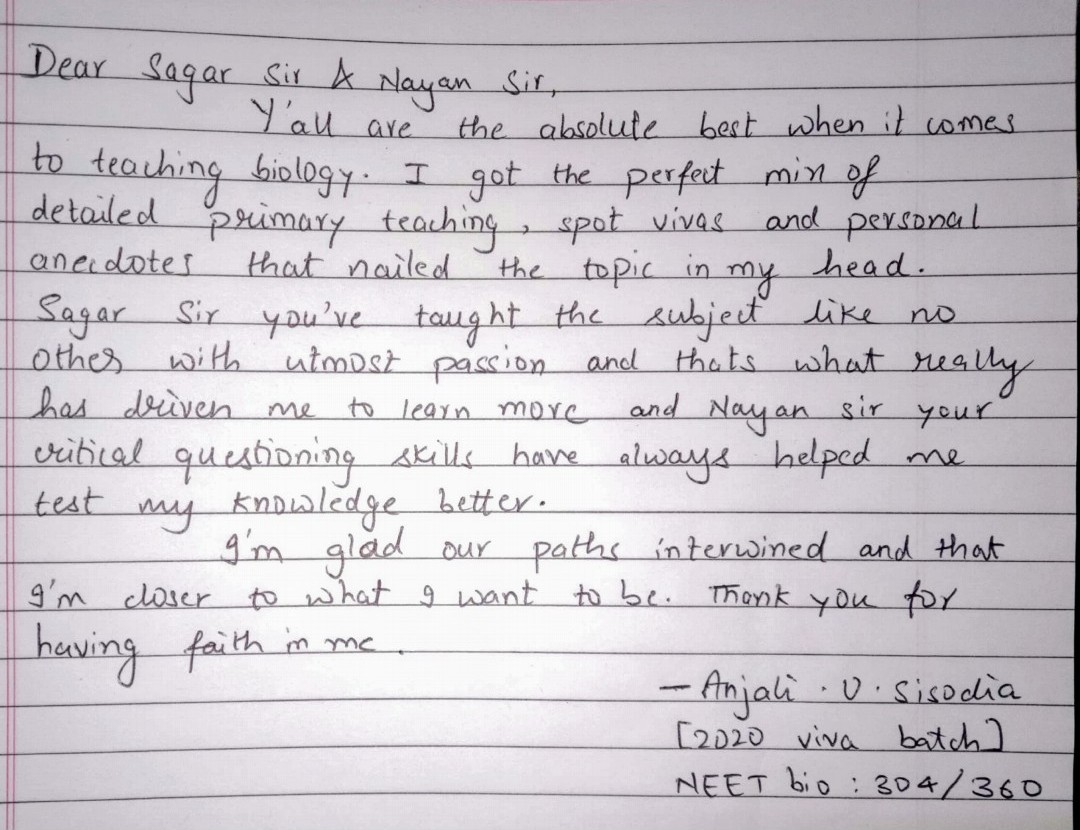 Dear Sagar Sir & Nayan Sir,
Y'all are the absolute best when it comes
to teaching biology. I got the perfect mix of
detailed primary teaching, spot vivas and personal
anecdotes that nailed the topic in my head.
Sagar Sir you've taught the subject like no
other with utmost passion and thats what really
has driven me to learn more and Nayan sir your
critical questioning skills have always helped me
test my knowledge better.
I'm glad our paths interwined and that
I'm closer to what I want to be. Thank you for
having faith in me.
- Anjali . V . Sisodia
[2020 viva batch]
NEET bio : 304/360